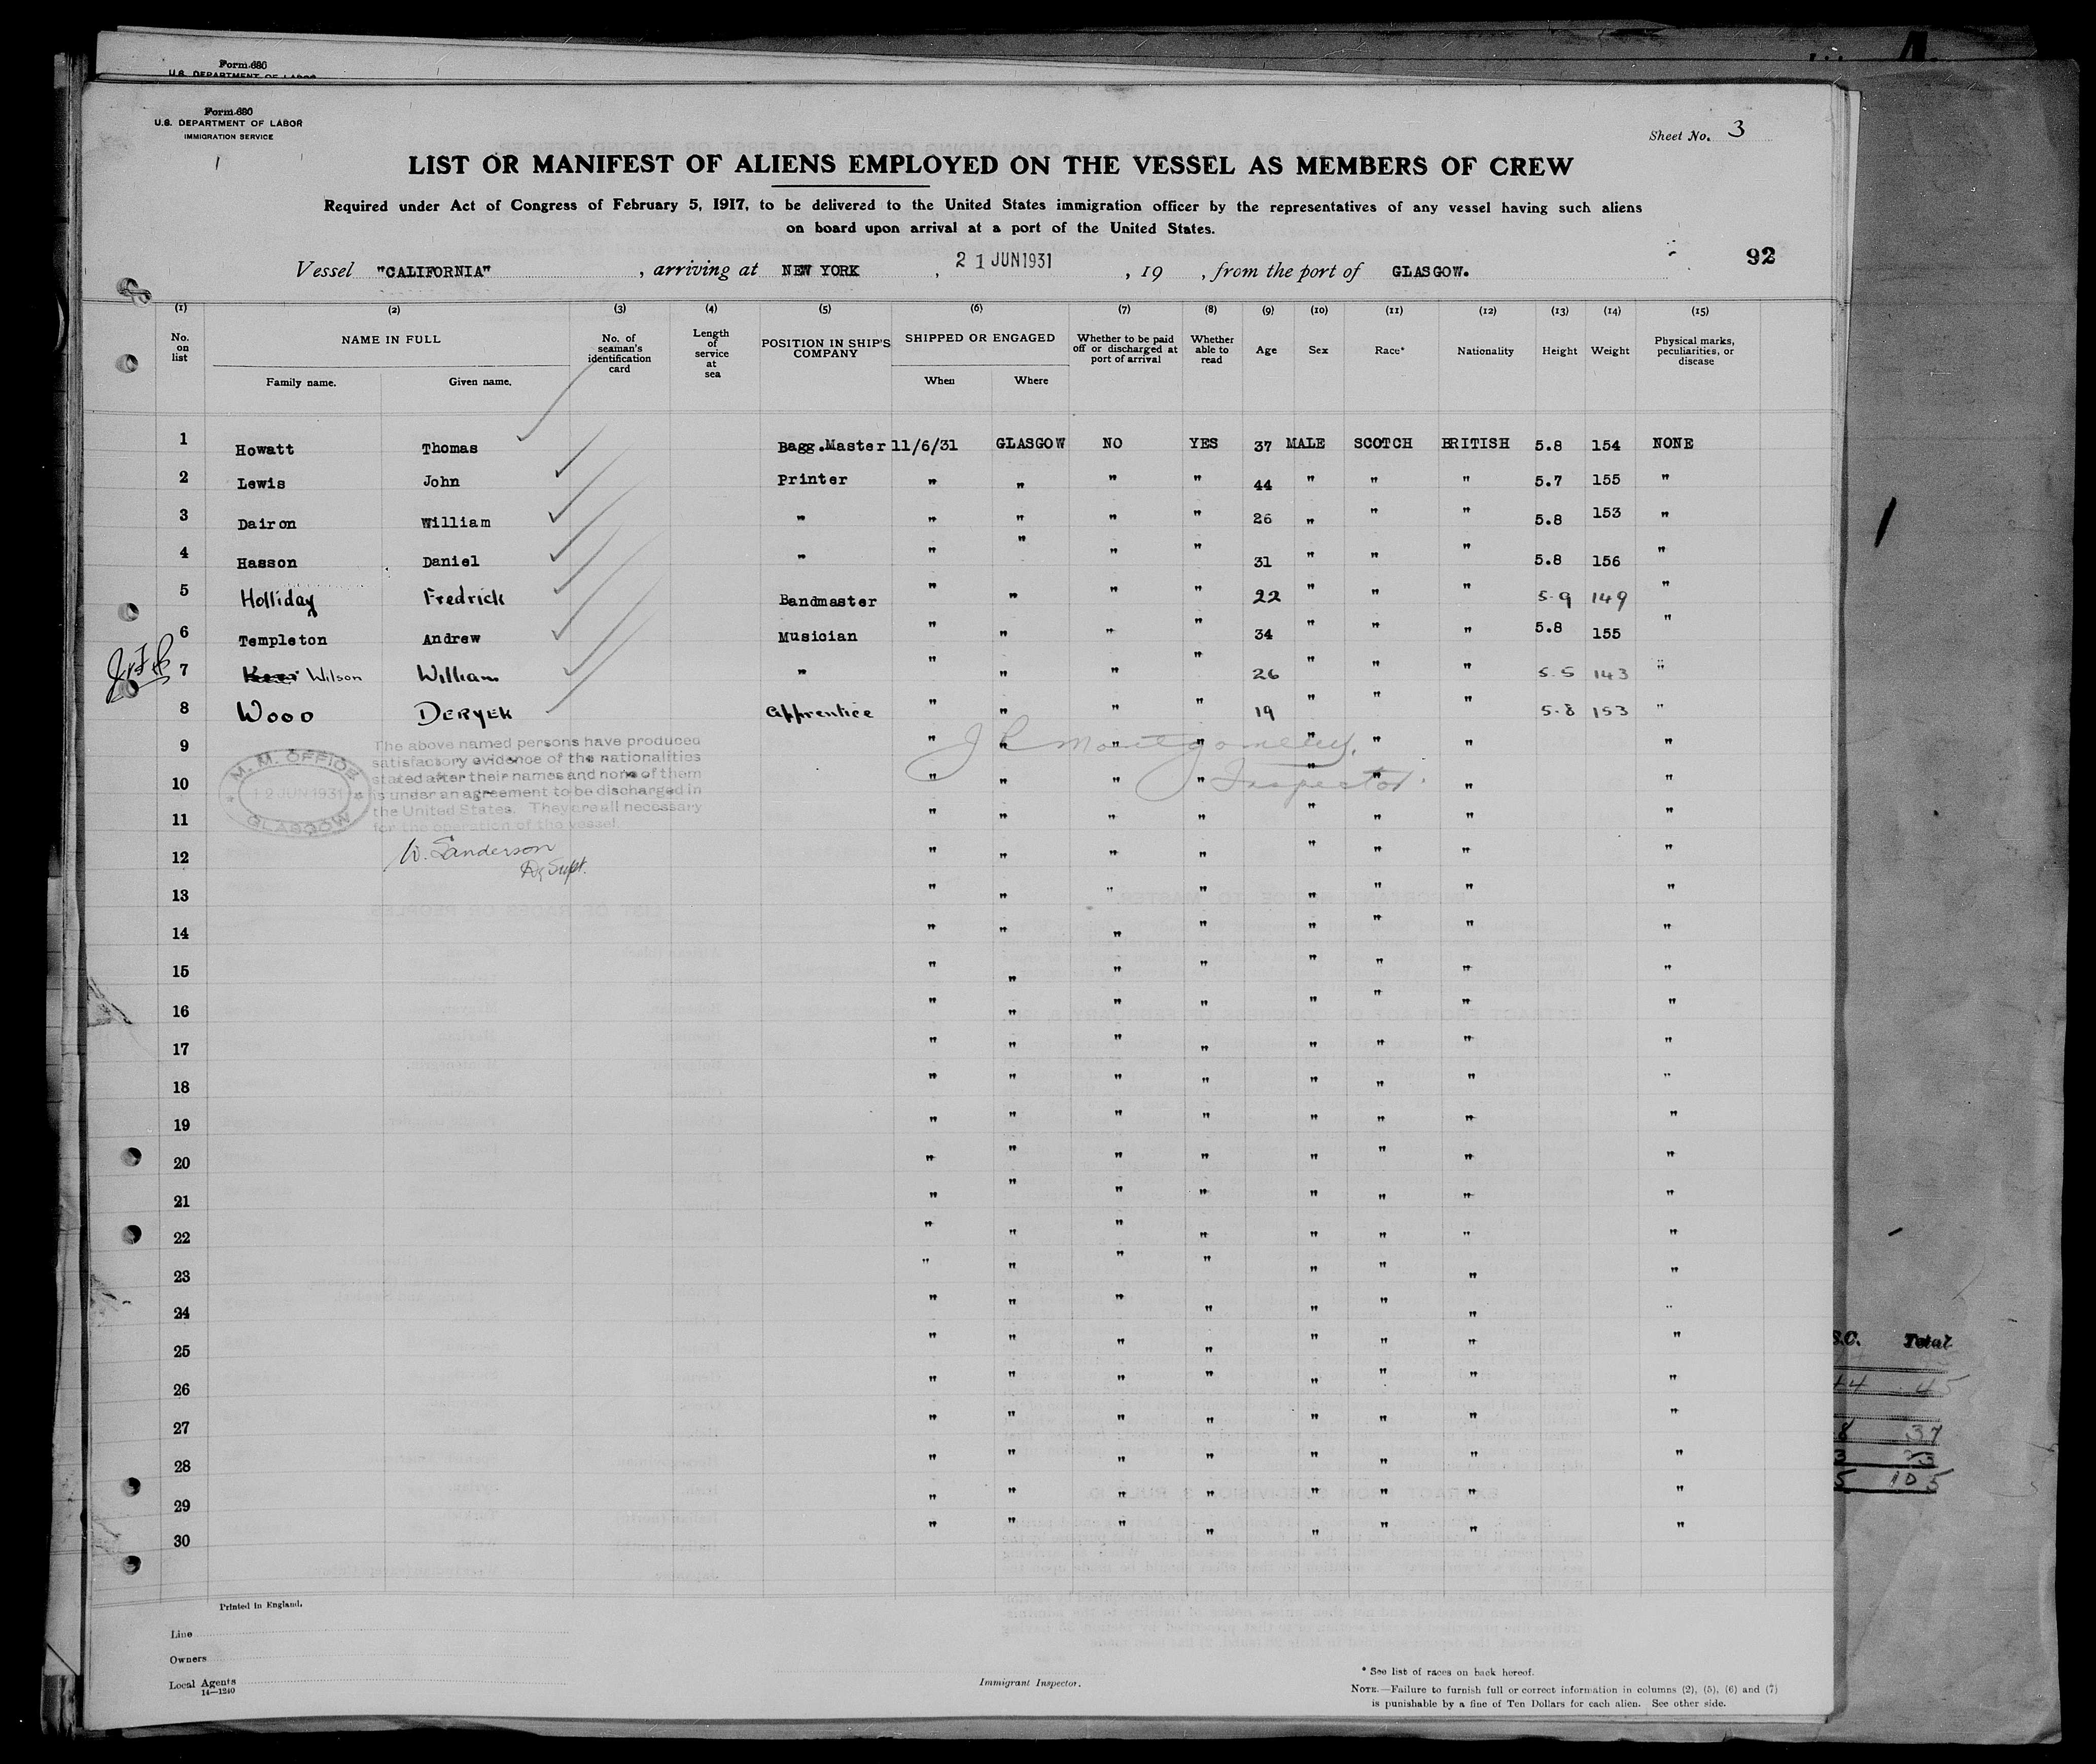 Form 680
U.S. DEPARTMENT OF LABOR
Form 680
U.S. DEPARTMENT OF LABOR
IMMIGRATION SERVICE
Sheet No. 3
LIST OR MANIFEST OF ALIENS EMPLOYED ON THE VESSEL AS MEMBERS OF CREW
Required under Act of Congress of February 5, 1917, to be delivered to the United States immigration officer by the representatives of any vessel having such aliens
on board upon arrival at a port of the United States.
92
Vessel "CALIFORNIA", arriving at NEW YORK, 21 JUN 1931, 19 , from the port of GLASGOW.
(1) (2) (3) (4) (5) (6) (7) (8) (9) (10) (11) (12) (13) (14) (15)
No. on list NAME IN FULL No. of seaman's identification card Length of service at sea POSITION IN SHIP'S COMPANY SHIPPED OR ENGAGED Whether to be paid off or discharged at port of arrival Whether able to read Age Sex Race* Nationality Height Weight Physical marks, peculiarities, or disease
Family name. Given name. When Where
1 Howatt Thomas Bagg.Master 11/6/31 GLASGOW NO YES 37 MALE SCOTCH BRITISH 5.8 154 NONE
2 Lewis John Printer " " " " 44 " " " 5.7 155 "
3 Dairon William " " " " " 26 " " " 5.8 153 "
4 Hasson Daniel " " " " " 31 " " " 5.8 156 "
5 Holliday Fredrick Bandmaster " " " " 22 " " " 5.9 149 "
6 Templeton Andrew Musician " " " " 34 " " " 5.8 155 "
7 Wilson William " " " " " 26 " " " 5.5 143 "
8 Wood DERYEK Apprentice " " " " 19 " " " 5.8 153 "
9 " " " " " " " "
10 " " " " " " " "
J Montgomery.
Inspector.
The above named persons have produced
satisfactory evidence of the nationalities
stated after their names and none of them
is under an agreement to be discharged in
the United States. They are all necessary
for the operation of the vessel.
M. M. OFFICE
12 JUN 1931
GLASGOW
W. Sanderson
Dy Supt.
11 " " " " " " " "
12 " " " " " " " "
13 " " " " " " " "
14 " " " " " " " "
15 " " " " " " " "
16 " " " " " " " "
17 " " " " " " " "
18 " " " " " " " "
19 " " " " " " " "
20 " " " " " " " "
21 " " " " " " " "
22 " " " " " " " "
23 " " " " " " " "
24 " " " " " " " "
25 " " " " " " " "
26 " " " " " " " "
27 " " " " " " " "
28 " " " " " " " "
29 " " " " " " " "
30 " " " " " " " "
S.C. Total
44 45
8 37
3 23
5 105
Printed in England.
Line
Owners
Local Agents
14—1240
Immigrant Inspector.
* See list of races on back hereof.
NOTE.—Failure to furnish full or correct information in columns (2), (5), (6) and (7)
is punishable by a fine of Ten Dollars for each alien. See other side.